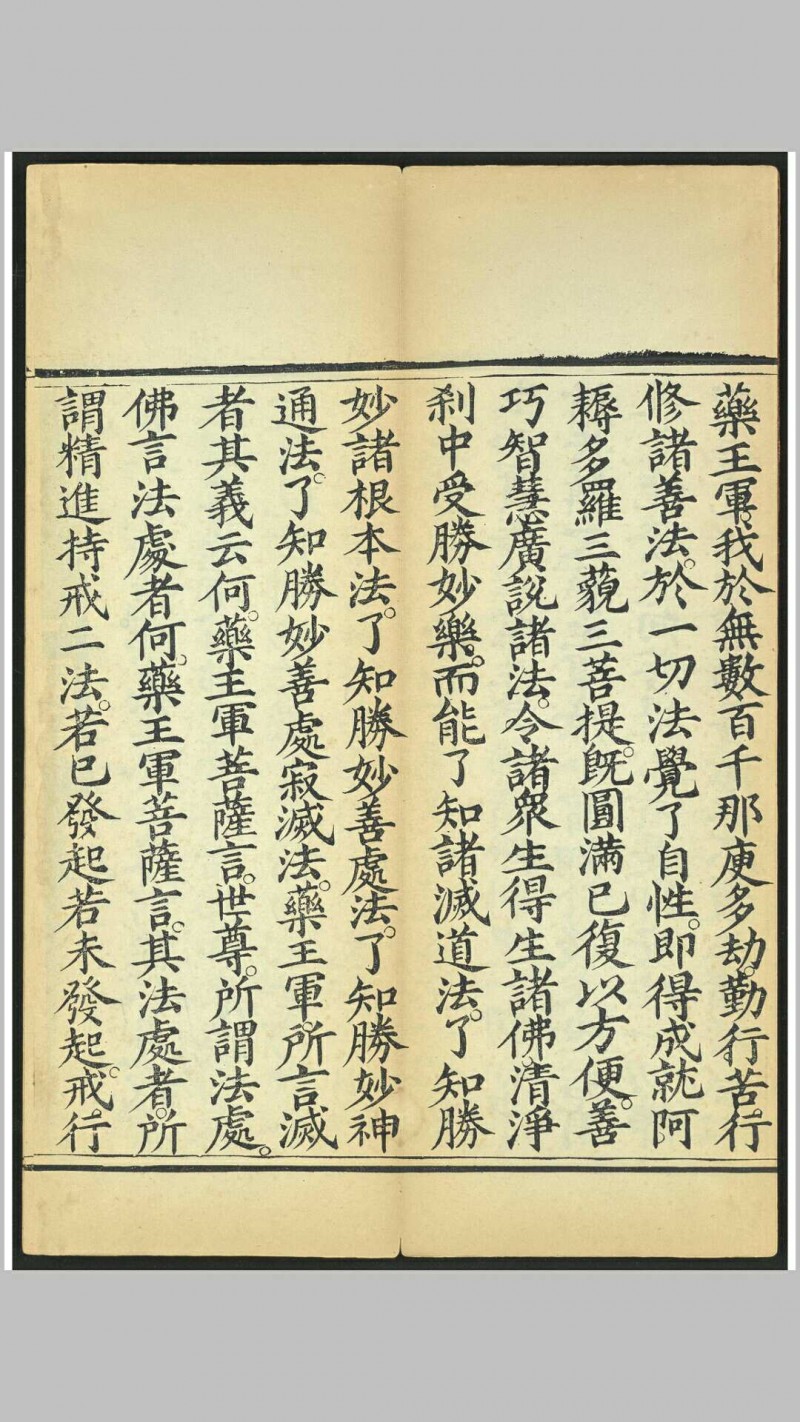 藥王軍。我於無數百千那庾多劫。勤行苦行。
修諸善法。於一切法覺了自性。即得成就阿
耨多羅三藐三菩提。既圓滿已復以方便。善
巧智慧廣説諸法。令諸衆生得生諸佛清淨
刹中受勝妙樂。而能了知諸滅道法。了知勝
妙諸根本法。了知勝妙善處法。了知勝妙神
通法。了知勝妙善處寂滅法。藥王軍。所言滅
者其義云何。藥王軍菩薩言。世尊。所謂法處。
佛言法處者何。藥王軍菩薩言。其法處者。所
謂精進持戒二法。若已發起若未發起。戒行